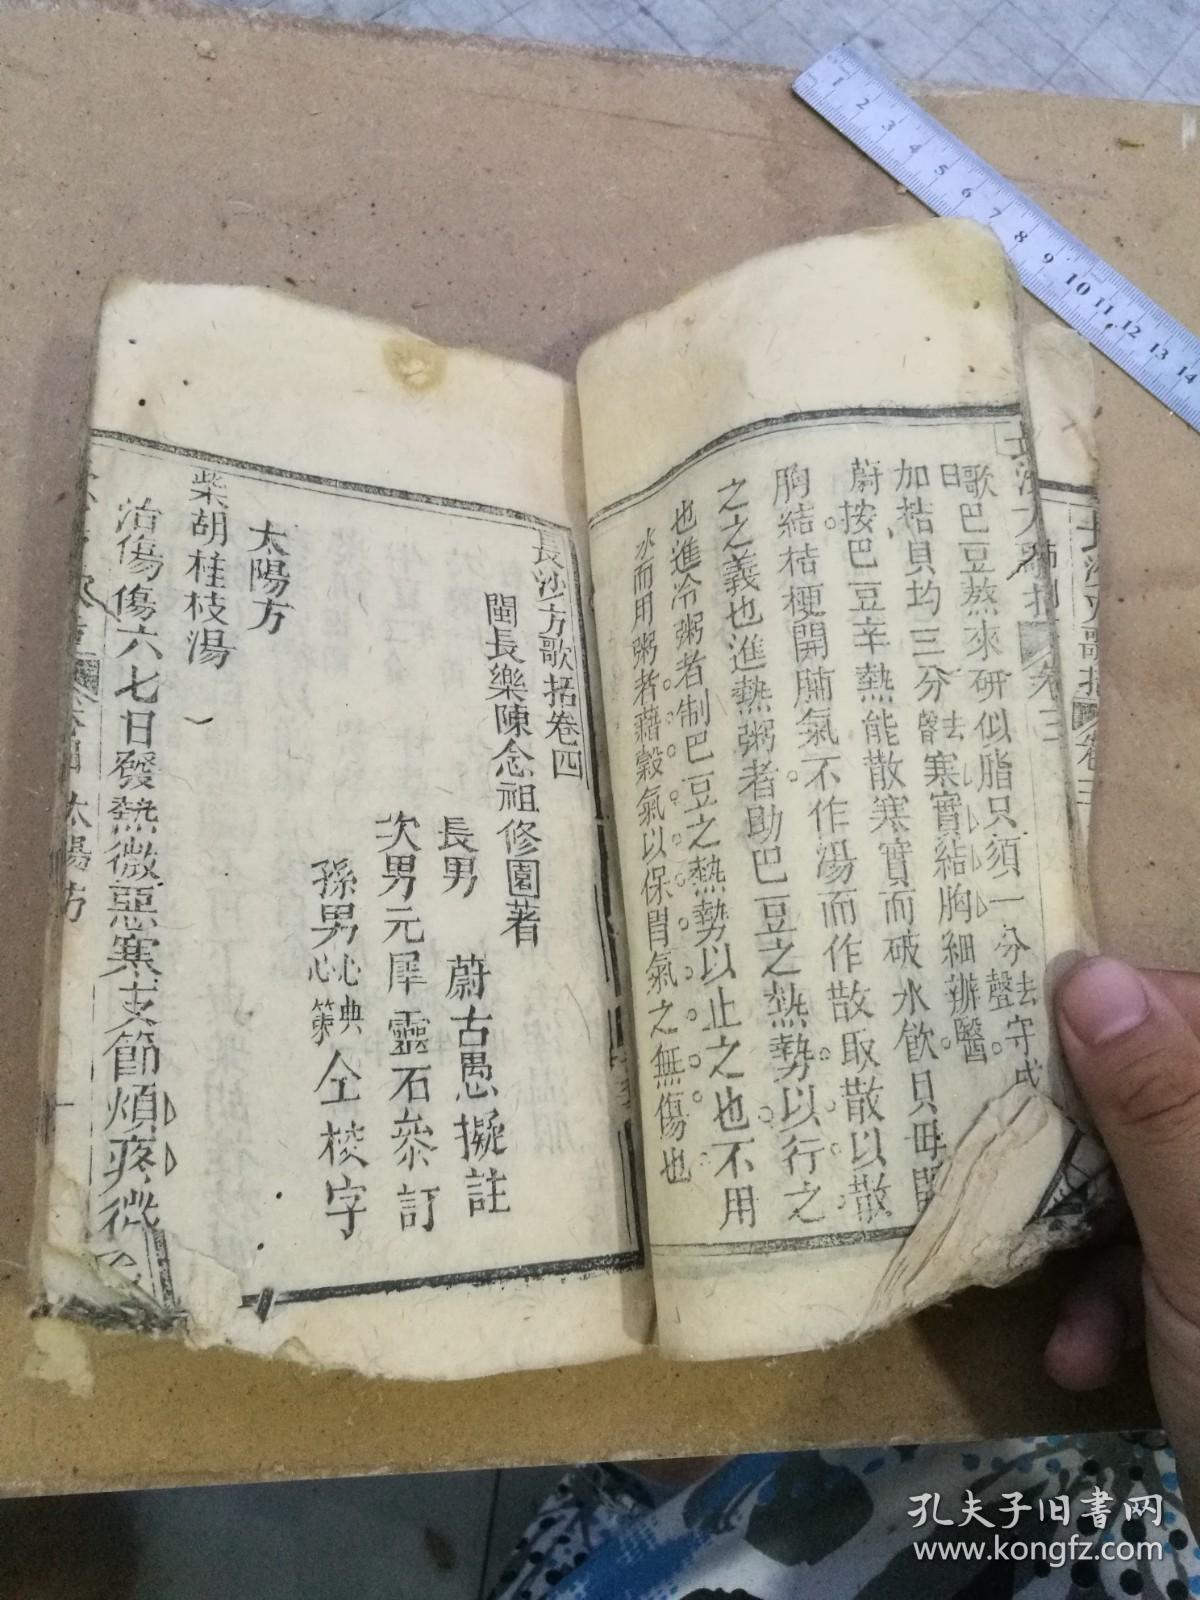 歌曰巴豆熬來研似脂只須一分去聲守
加桔貝均三分去聲寒實結胸細辨醫
蔚按巴豆辛熱能散寒實而破水飲貝母開
胸結桔梗開肺氣不作湯而作散取散以散
之之義也進熱粥者助巴豆之熱勢以行之
也進冷粥者制巴豆之熱勢以止之也不用
水而用粥者藉穀氣以保胃氣之無傷也
長沙方歌括卷四
閩長樂陳念祖修園著
長男 蔚古愚擬註
次男元犀靈石參訂
孫男心典心蘭仝校字
太陽方
柴胡桂枝湯
治傷傷六七日發熱微惡寒支節煩疼微
太陽方
長沙方歌括 卷三
1 2 3 4 5 6 7 8 9 10 11 12 13 14
孔夫子旧书网
www.kongfz.com